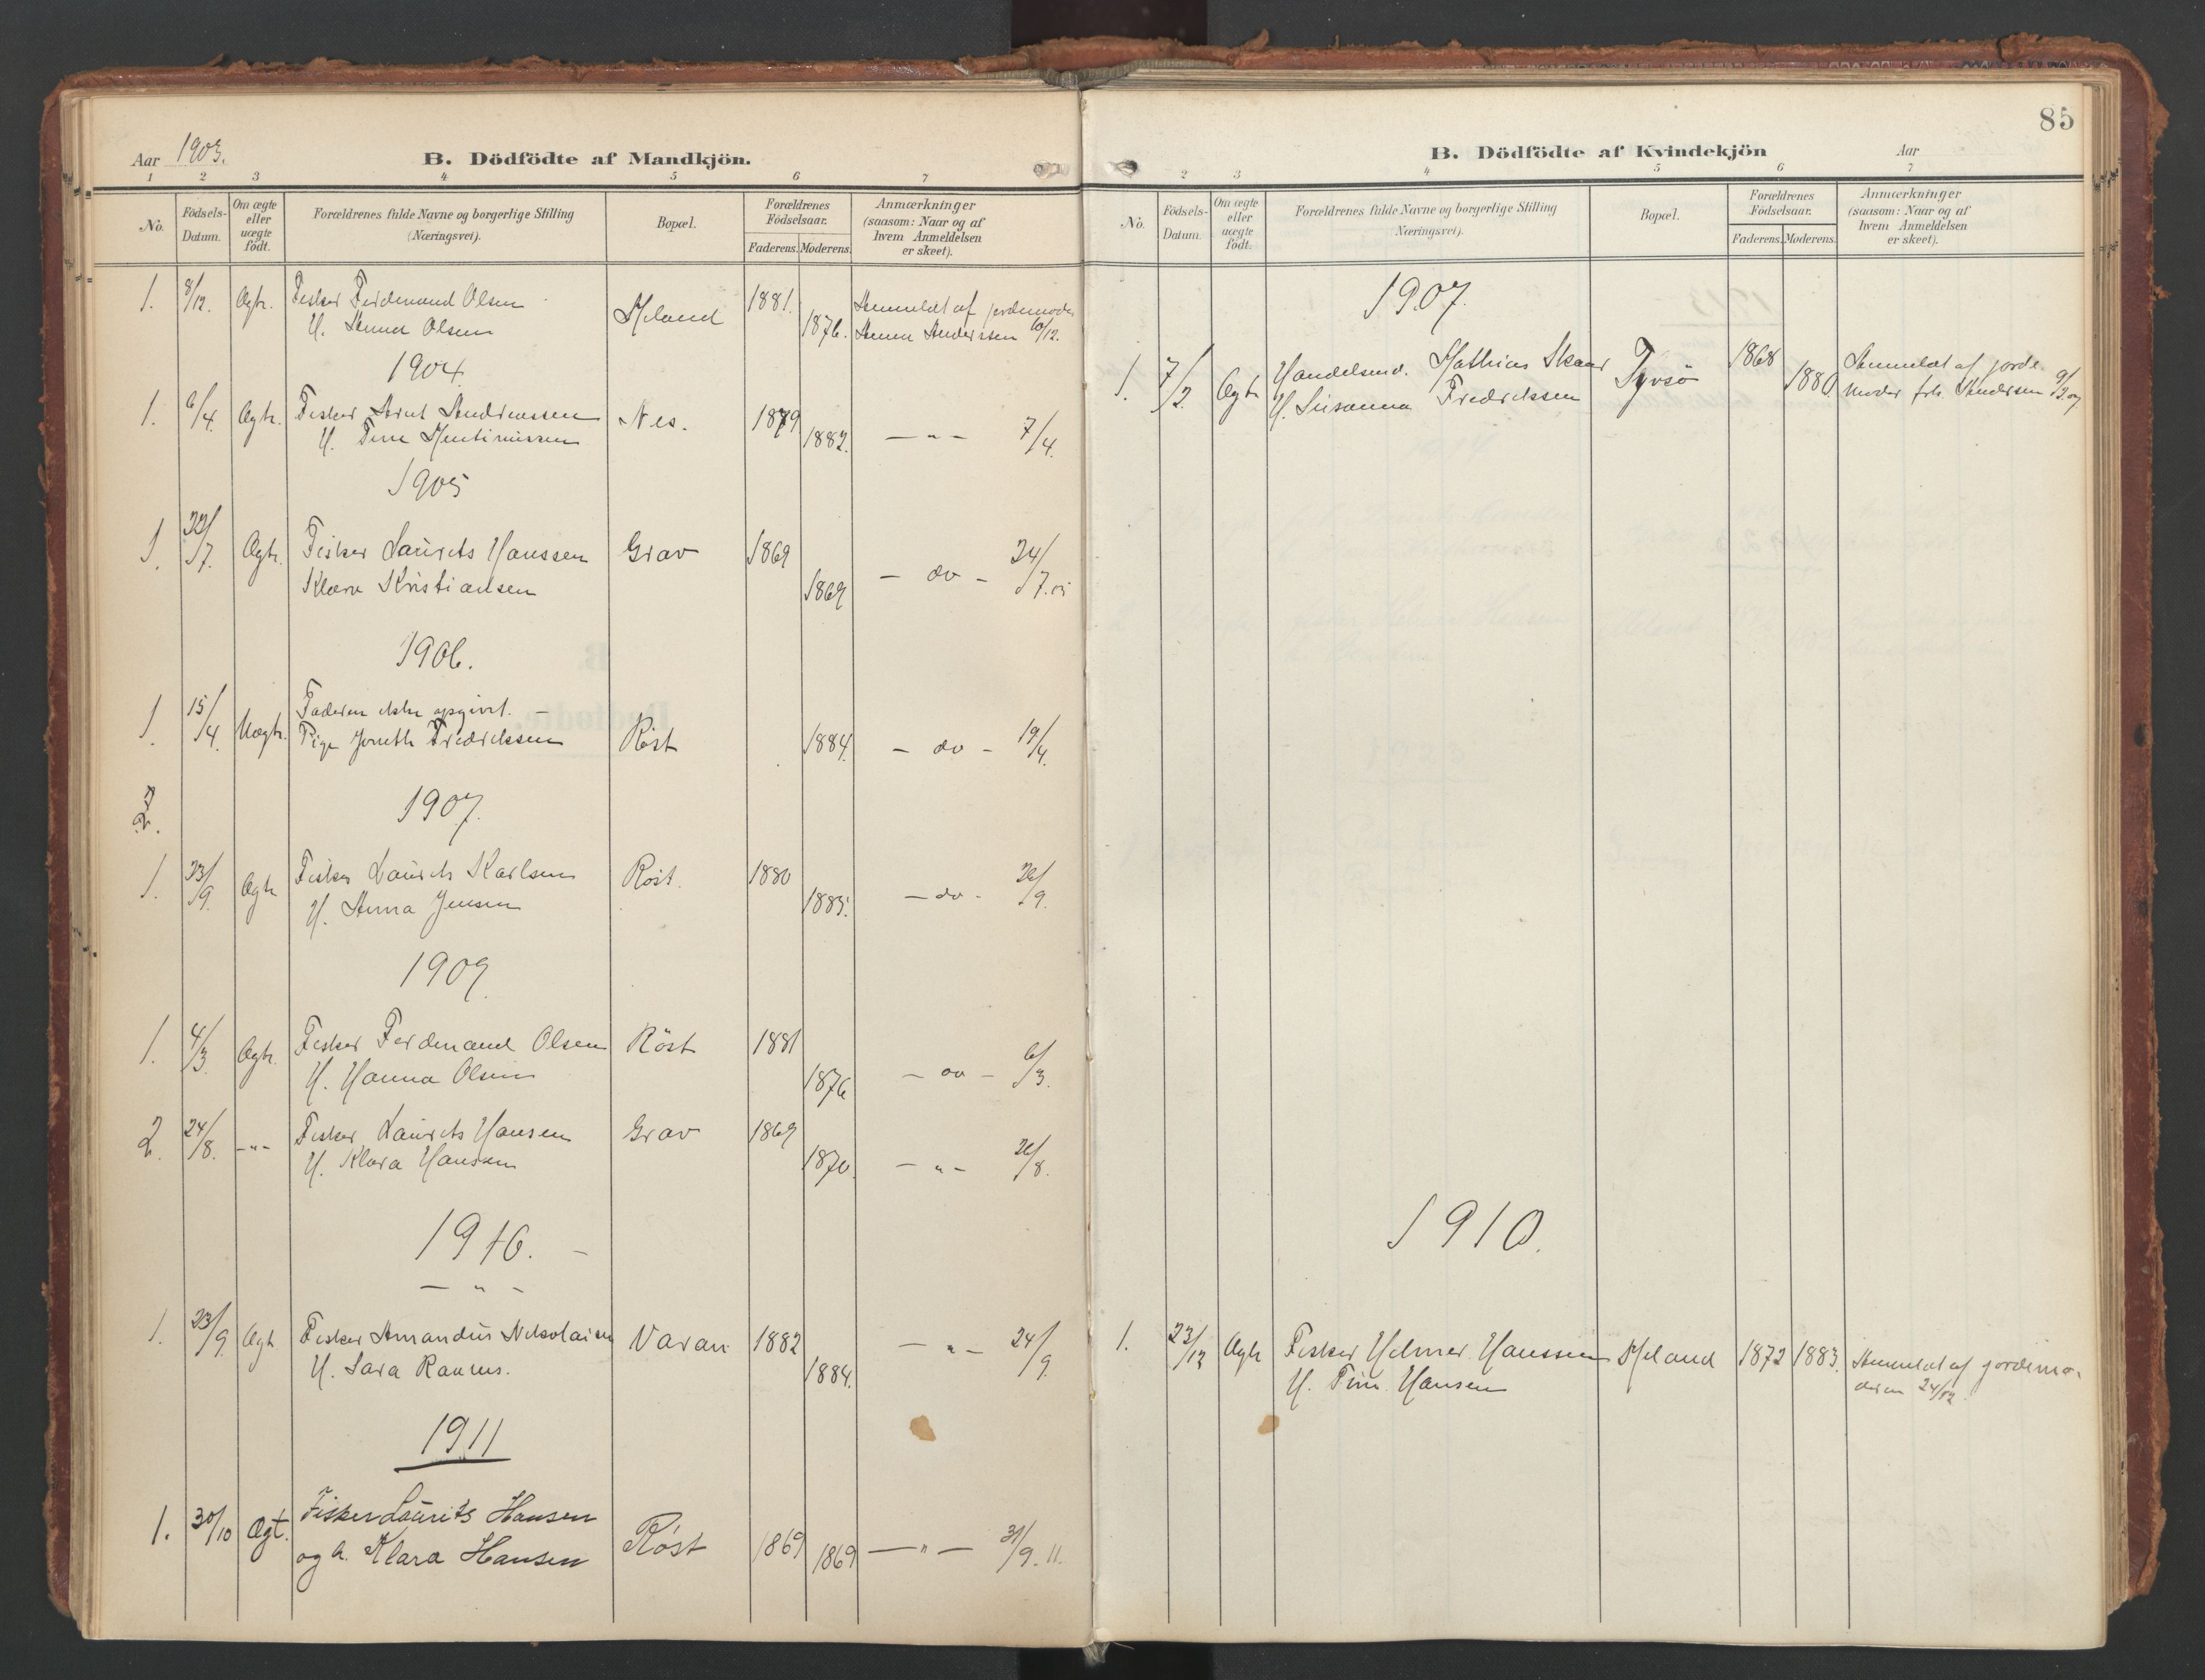 Aar 1903.
B. Dödfödte af Mandkjön.
1 2 3 4 5 6 7
No.
Födsels-
Datum.
Om ægte
eller
uægte
födt.
Forældrenes fulde Navne og borgerlige Stilling
(Næringsvei).
Bopæl.
Forældrenes
Födselsaar.
Faderens. Moderens.
Anmærkninger
(saasom: Naar og af
hvem Anmeldelsen
er skeet).
1. 8/12. Ægte. Fisker Ferdinand Olsen 1881. Anmeldt af jordemoder
H. Hanna Olsen 1876. Anna Anderssen 10/12.
1904.
1. 6/4. Ægte. Fisker Arnt Andreassen Nes. 1879
1882. — " — 7/4.
1905
1. 22/7. Ægte. Fisker Laurits Hanssen Grav 1869
Klara Kristiansen 1869 — do — 24/7.05
1906.
1. 15/4. Uægte. Faderen ikke opgivet. —
Pige Fredriksen Röst 1884. — do — 19/4.
2.
1907.
1. 23/9. Ægte Fisker Laurits Karlsen Röst. 1880
H. Anna Jensen 1885. — do — 26/9.
1909
1. 4/3. Ægte. Fisker Ferdinand Olsen Röst 1881
H. Hanna Olsen 1876 — do — 6/3.
2. 24/8. —"— Fisker Laurits Hansen Grav 1869
H. Klara Hansen 1870. — " — 26/8.
1910. —
— " —
1. 23/9. Ægte Fisker Amandus Nikolaisen Varan 1882
H. Sara 1884. — " — 24/9.
1911
1. 30/10 Ægt. Fisker Laurits Hansen
og h. Klara Hansen Röst 1869 1869 — " — 31/9. 11.
85
B. Dödfödte af Kvindekjön
Aar
2 3 4 5 6 7
No.
Födsels-
Datum.
Om ægte
eller
uægte
födt.
Forældrenes fulde Navne og borgerlige Stilling
(Næringsvei).
Bopæl.
Forældrenes
Födselsaar.
Faderens. Moderens.
Anmærkninger
(saasom: Naar og af
hvem Anmeldelsen
er skeet).
1907.
1. 7/2. Ægte Handelsmd. Mathias Skaar Tyvsö 1868 Anmeldt af jorde-
H. Susanna Fredriksen 1880. moder frk. Andersen 9/2 07
1910.
1. 23/12 Ægte Fisker Helmer Hanssen 1872 1883. Anmeldt af jordemo-
H. Hansen deren 24/12.